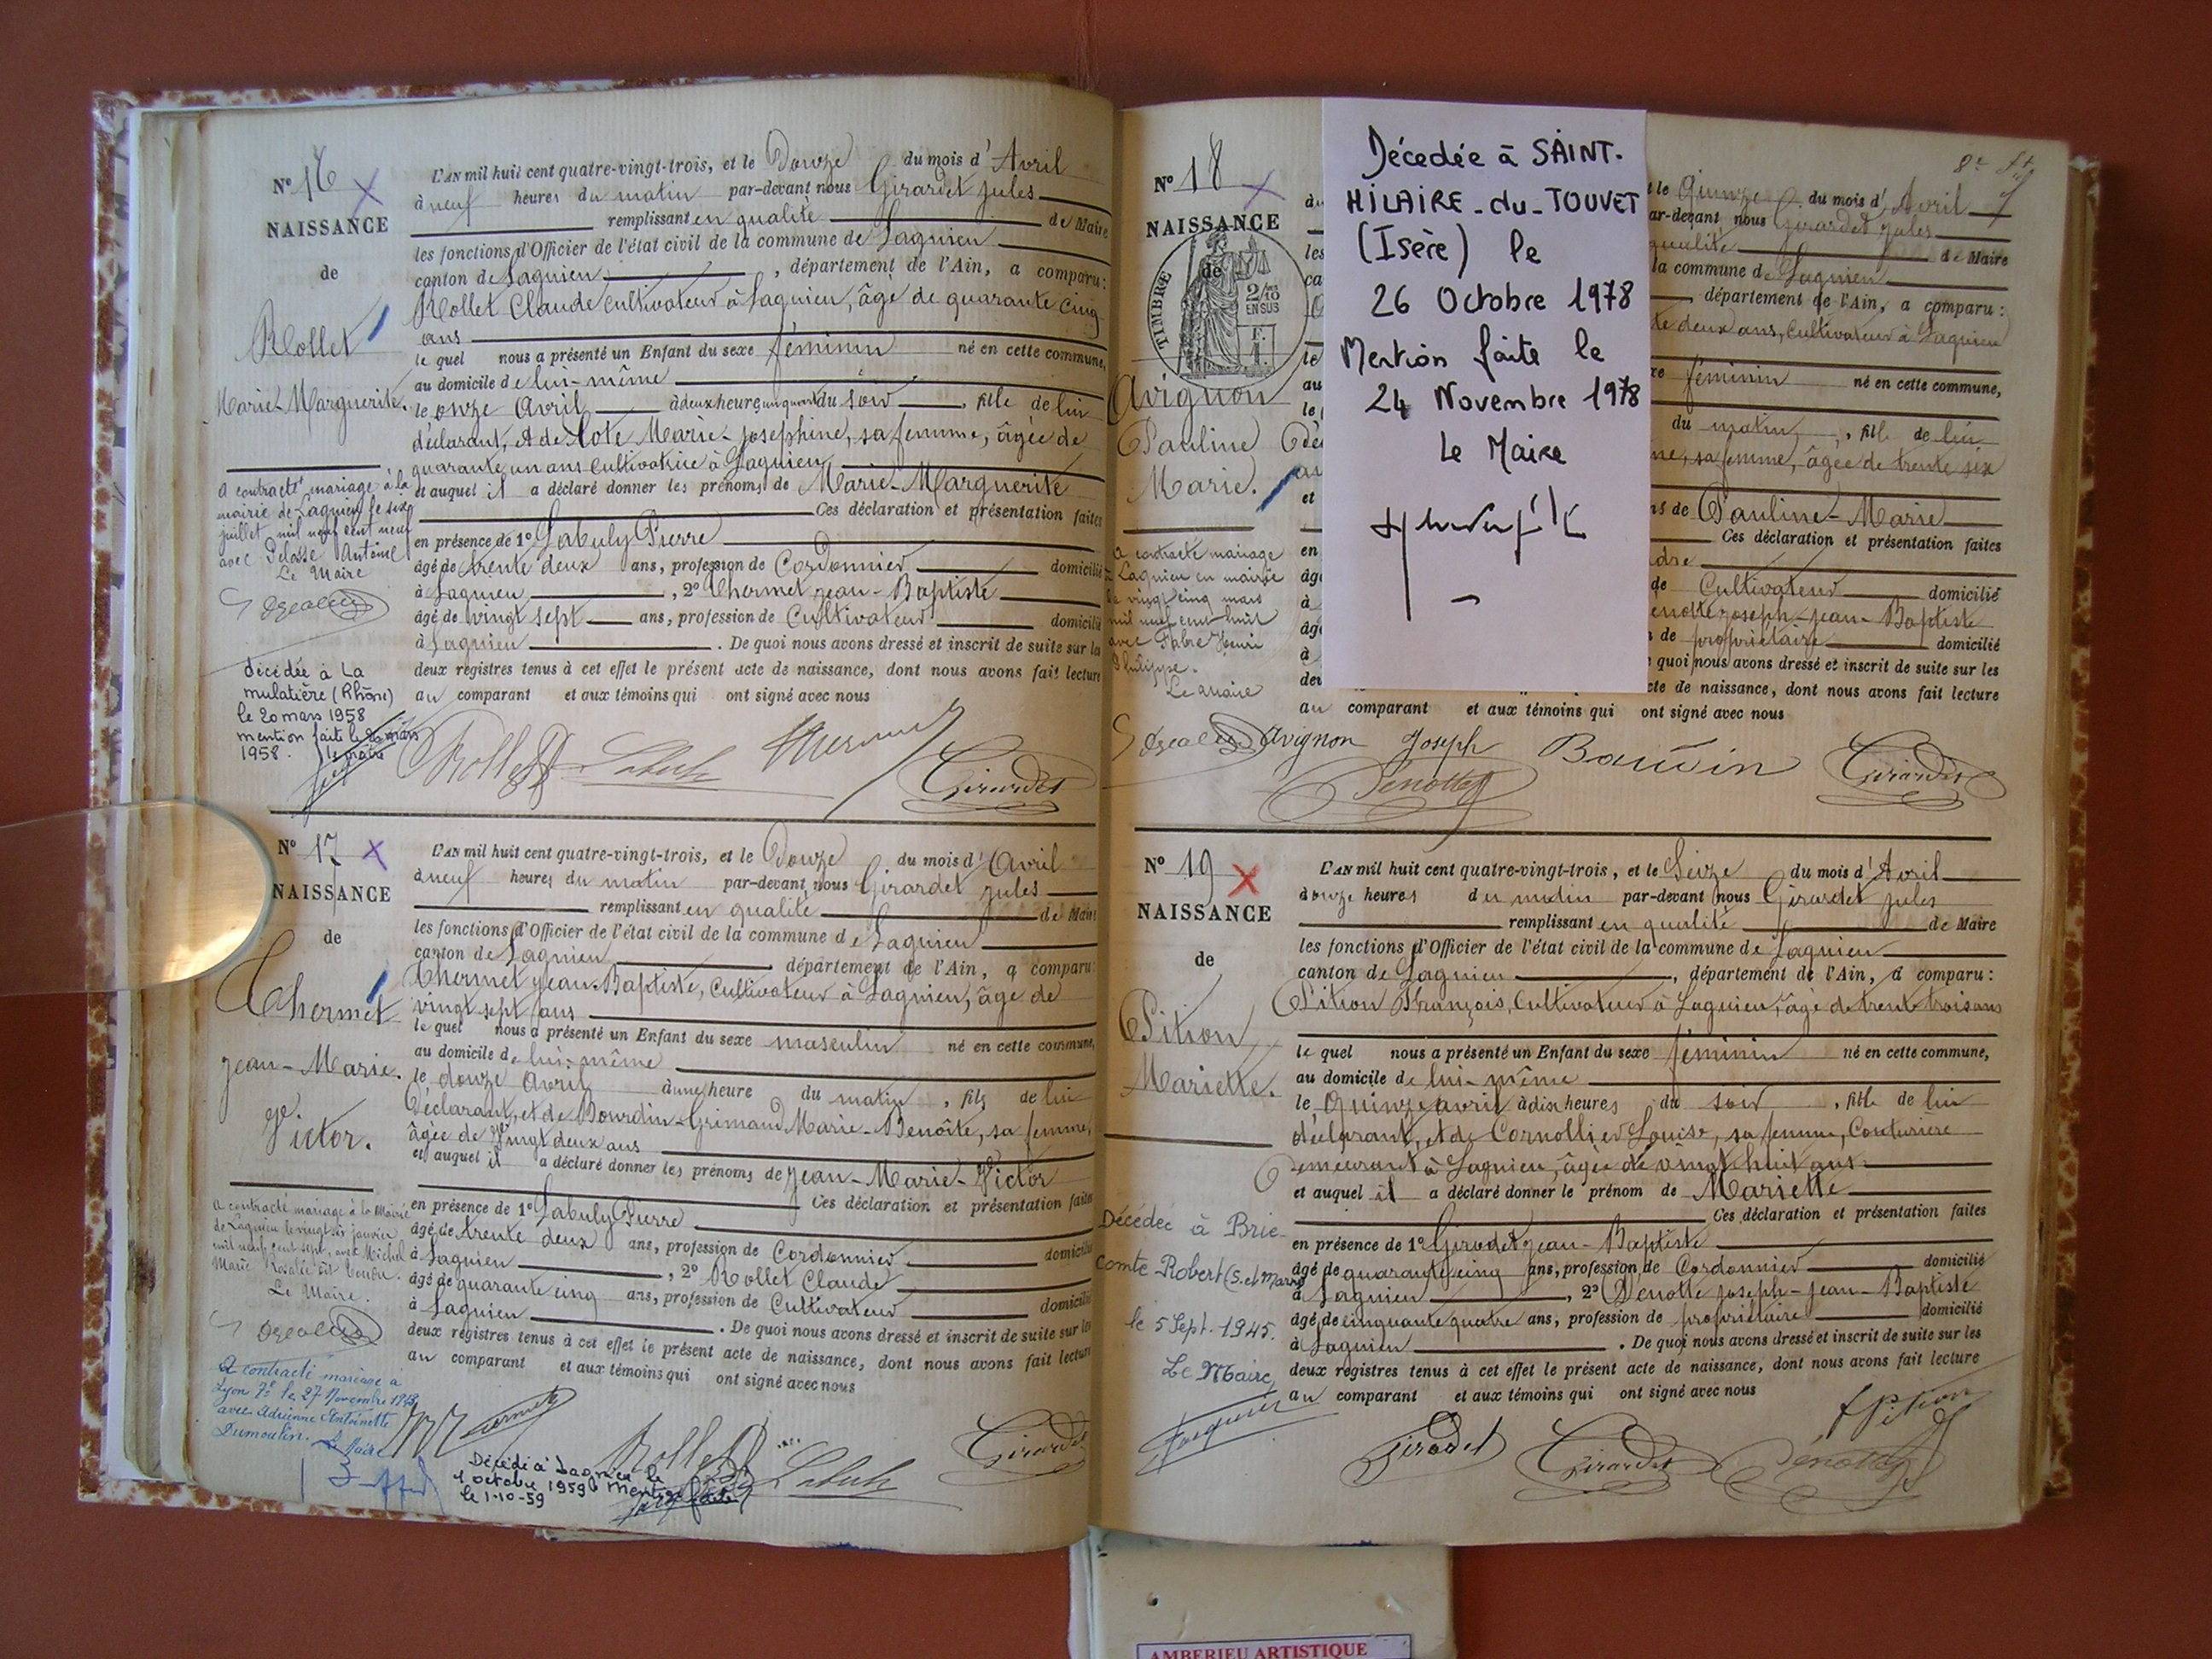 N° 16
NAISSANCE
de
Rollet
Marie-Marguerite.
A contracté mariage à la
mairie de Lagnieu le six
juillet mil neuf cent neuf
avec Pelosse Antoine
Le Maire
décédée à La
mulatière (Rhône)
le 20 mars 1958
mention faite le mars
1958. le maire
L'AN mil huit cent quatre-vingt-trois, et le Douze du mois d'Avril
à neuf heures du matin par-devant nous Girardet jules
remplissant en qualité de Maire
les fonctions d'Officier de l'état civil de la commune de Lagnieu
canton de Lagnieu, département de l'Ain, a comparu:
Rollet Claude Cultivateur à Lagnieu, âgé de quarante cinq
ans
le quel nous a présenté un Enfant du sexe féminin né en cette commune,
au domicile de lui-même
le onze Avril à deux heures du soir, fille de lui
déclarant, et de Marie-Joséphine, sa femme, âgée de
quarante un ans Cultivatrice à Lagnieu
et auquel il a déclaré donner les prénoms de Marie-Marguerite
Ces déclaration et présentation faites
en présence de 1° Labuly Pierre
âgé de trente deux ans, profession de Cordonnier domicilié
à Lagnieu, 2° Thermet jean-Baptiste
âgé de vingt sept ans, profession de Cultivateur domicilié
à Lagnieu. De quoi nous avons dressé et inscrit de suite sur les
deux registres tenus à cet effet le présent acte de naissance, dont nous avons fait lecture
au comparant et aux témoins qui ont signé avec nous
Rollet Labuly Girardet
N° 17
NAISSANCE
de
Thermet
jean-Marie.
Victor.
A contracté mariage à la Mairie
de Lagnieu le vingt six janvier
mil neuf cent sept, avec Michel
Marie Rosalie
Le Maire.
A contracté mariage à
Lyon 7e le 27 Novembre
avec Adrienne Antoinette
Dumoulin. Le Maire
Décédé à Lagnieu le
1 octobre 1959 Mention
le 1-10-59 faite
L'AN mil huit cent quatre-vingt-trois, et le Douze du mois d'Avril
à neuf heures du matin par-devant nous Girardet jules
remplissant en qualité de Maire
les fonctions d'Officier de l'état civil de la commune de Lagnieu
canton de Lagnieu département de l'Ain, a comparu:
Thermet jean-Baptiste, Cultivateur à Lagnieu, âgé de
vingt sept ans
le quel nous a présenté un Enfant du sexe masculin né en cette commune,
au domicile de lui-même
le douze Avril à une heure du matin, fils de lui
Déclarant, et de Bourdin-Grimaud Marie-Benoîte, sa femme,
âgée de vingt deux ans
et auquel il a déclaré donner les prénoms de jean-Marie-Victor
Ces déclaration et présentation faites
en présence de 1° Labuly Pierre
âgé de trente deux ans, profession de Cordonnier domicilié
à Lagnieu, 2° Rollet Claude
âgé de quarante cinq ans, profession de Cultivateur domicilié
à Lagnieu. De quoi nous avons dressé et inscrit de suite sur les
deux registres tenus à cet effet le présent acte de naissance, dont nous avons fait lecture
au comparant et aux témoins qui ont signé avec nous
Rollet Labuly Girardet
N° 18
NAISSANCE
de
TIMBRE
2/10
EN SUS
Avignon
Pauline
Marie.
A contracté mariage
à Lagnieu en mairie
le vingt cinq mars
mil neuf cent huit
avec Fabre Henri
Philippe.
Le Maire
Décedée à SAINT.
HILAIRE-du-TOUVET
(Isère) le
26 Octobre 1978
Mention faite le
24 Novembre 1978
Le Maire
8e
le Quinze du mois d'Avril
ar-devant nous Girardet jules
qualité de Maire
la commune de Lagnieu
département de l'Ain, a comparu:
te deux ans, Cultivateur à Lagnieu
féminin né en cette commune,
du matin, fille de lui
ne, sa femme, âgée de trente six
ns de Pauline-Marie
Ces déclaration et présentation faites
dre
de Cultivateur domicilié
enotte joseph-jean-Baptiste
de propriétaire domicilié
quoi nous avons dressé et inscrit de suite sur les
cte de naissance, dont nous avons fait lecture
au comparant et aux témoins qui ont signé avec nous
Avignon Joseph Bauvin Girardet
Dénotte
N° 19
NAISSANCE
de
Pition
Mariette.
Décédée à Brie-
Comte-Robert (S. et Marne)
le 5 Sept. 1945.
Le Maire,
L'AN mil huit cent quatre-vingt-trois, et le Seize du mois d'Avril
à onze heures du matin par-devant nous Girardet jules
remplissant en qualité de Maire
les fonctions d'Officier de l'état civil de la commune de Lagnieu
canton de Lagnieu, département de l'Ain, a comparu:
Pition François, Cultivateur à Lagnieu, âgé de trente-trois ans
le quel nous a présenté un Enfant du sexe féminin né en cette commune,
au domicile de lui-même
le Quinze avril à dix heures du soir, fille de lui
déclarant, et de Cornollier Louise, sa femme, Couturière
Demeurant à Lagnieu, âgée de vingt huit ans
et auquel il a déclaré donner le prénom de Mariette
Ces déclaration et présentation faites
en présence de 1° Girodet jean-Baptiste
âgé de quarante cinq ans, profession de Cordonnier domicilié
à Lagnieu, 2° Dénotte joseph-jean-Baptiste
âgé de cinquante quatre ans, profession de propriétaire domicilié
à Lagnieu. De quoi nous avons dressé et inscrit de suite sur les
deux registres tenus à cet effet le présent acte de naissance, dont nous avons fait lecture
au comparant et aux témoins qui ont signé avec nous
Girodet Girardet Dénotte f Pition
AMBERIEU ARTISTIQUE